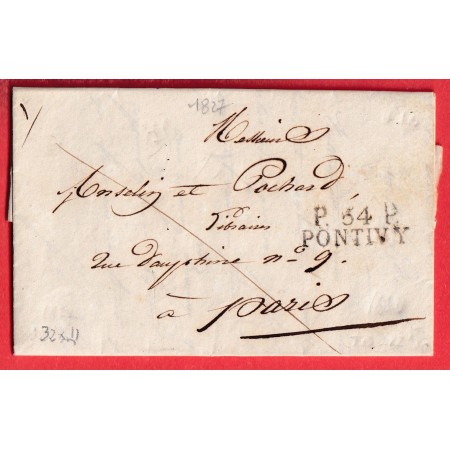 1827
Messieurs
Anselin et Pochard,
Libraires
rue dauphine n.º 9.
à Paris
P. 54 P.
PONTIVY